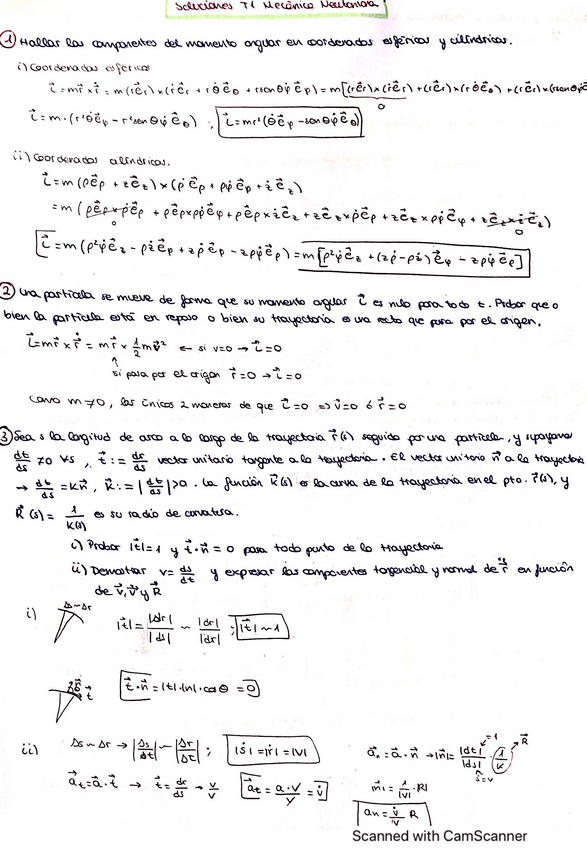 Soluciones T1 Mecánica Newtoniana
① Hallar las componentes del momento angular en coordenadas esféricas y cilíndricas.
i) Coordenadas esféricas
L⃗ = m r⃗ × ṙ⃗ = m(r ê_r) × (ṙ ê_r + r θ̇ ê_θ + r senθ φ̇ ê_φ) = m[(r ê_r) × (ṙ ê_r) + (r ê_r) × (r θ̇ ê_θ) + (r ê_r) × (r senθ φ̇ ê
0
L⃗ = m · (r² θ̇ ê_φ − r² senθ φ̇ ê_θ) ; L⃗ = m r² (θ̇ ê_φ − senθ φ̇ ê_θ)
ii) Coordenadas cilíndricas.
L⃗ = m (ρ ê_ρ + z ê_z) × (ρ̇ ê_ρ + ρ φ̇ ê_φ + ż ê_z)
= m (ρ ê_ρ × ρ̇ ê_ρ + ρ ê_ρ × ρ φ̇ ê_φ + ρ ê_ρ × ż ê_z + z ê_z × ρ̇ ê_ρ + z ê_z × ρ φ̇ ê_φ + z ê_z × ż ê_z)
0 0
L⃗ = m (ρ² φ̇ ê_z − ρ ż ê_φ + z ρ̇ ê_φ − z ρ φ̇ ê_ρ) = m [ρ² φ̇ ê_z + (z ρ̇ − ρ ż) ê_φ − z ρ φ̇ ê_ρ]
② Una partícula se mueve de forma que su momento angular L⃗ es nulo para todo t. Probar que o
bien la partícula está en reposo o bien su trayectoria es una recta que pasa por el origen.
L⃗ = m r⃗ × ṙ⃗ = m r⃗ × ½ m v⃗² ← si v=0 → L⃗ = 0
↑
si pasa por el origen r⃗ = 0 → L⃗ = 0
Como m ≠ 0, las únicas 2 maneras de que L⃗ = 0 ⇒ v⃗ = 0 ó r⃗ = 0
③ Sea s la longitud de arco a lo largo de la trayectoria r⃗(s) seguida por una partícula, y supongamos
dt/ds ≠ 0 ∀s, t⃗ := dr/ds vector unitario tangente a la trayectoria. El vector unitario n⃗ a la trayectoria
→ dt/ds = k n⃗, K := |dt/ds| > 0. La función K(s) es la curva de la trayectoria en el pto. r⃗(s), y
R(s) = 1/K(s) es su radio de curvatura.
i) Probar |t⃗| = 1 y t⃗ · n⃗ = 0 para todo punto de la trayectoria
ii) Demostrar v = ds/dt y expresar las componentes tangencial y normal de r̈⃗ en función
de v, v̇ y R
i) Δs ~ Δr
|t⃗| = |dr|/|ds| ~ |dr|/|dr| ; |t⃗| ~ 1
t⃗ · n⃗ = |t| · |n| · cosθ = 0
ii) Δs ~ Δr → |Δs/Δt| ~ |Δr/Δt| ; |ṡ| = |ṙ| = |v|
a⃗_t = a⃗ · t⃗ → t⃗ = dr/ds → v/v a⃗_t = a·v/v = v̇
a⃗_n = a⃗ · n⃗ → |n| = |dt|/|ds| · 1/k
a_n = v̇/|v| R
Scanned with CamScanner